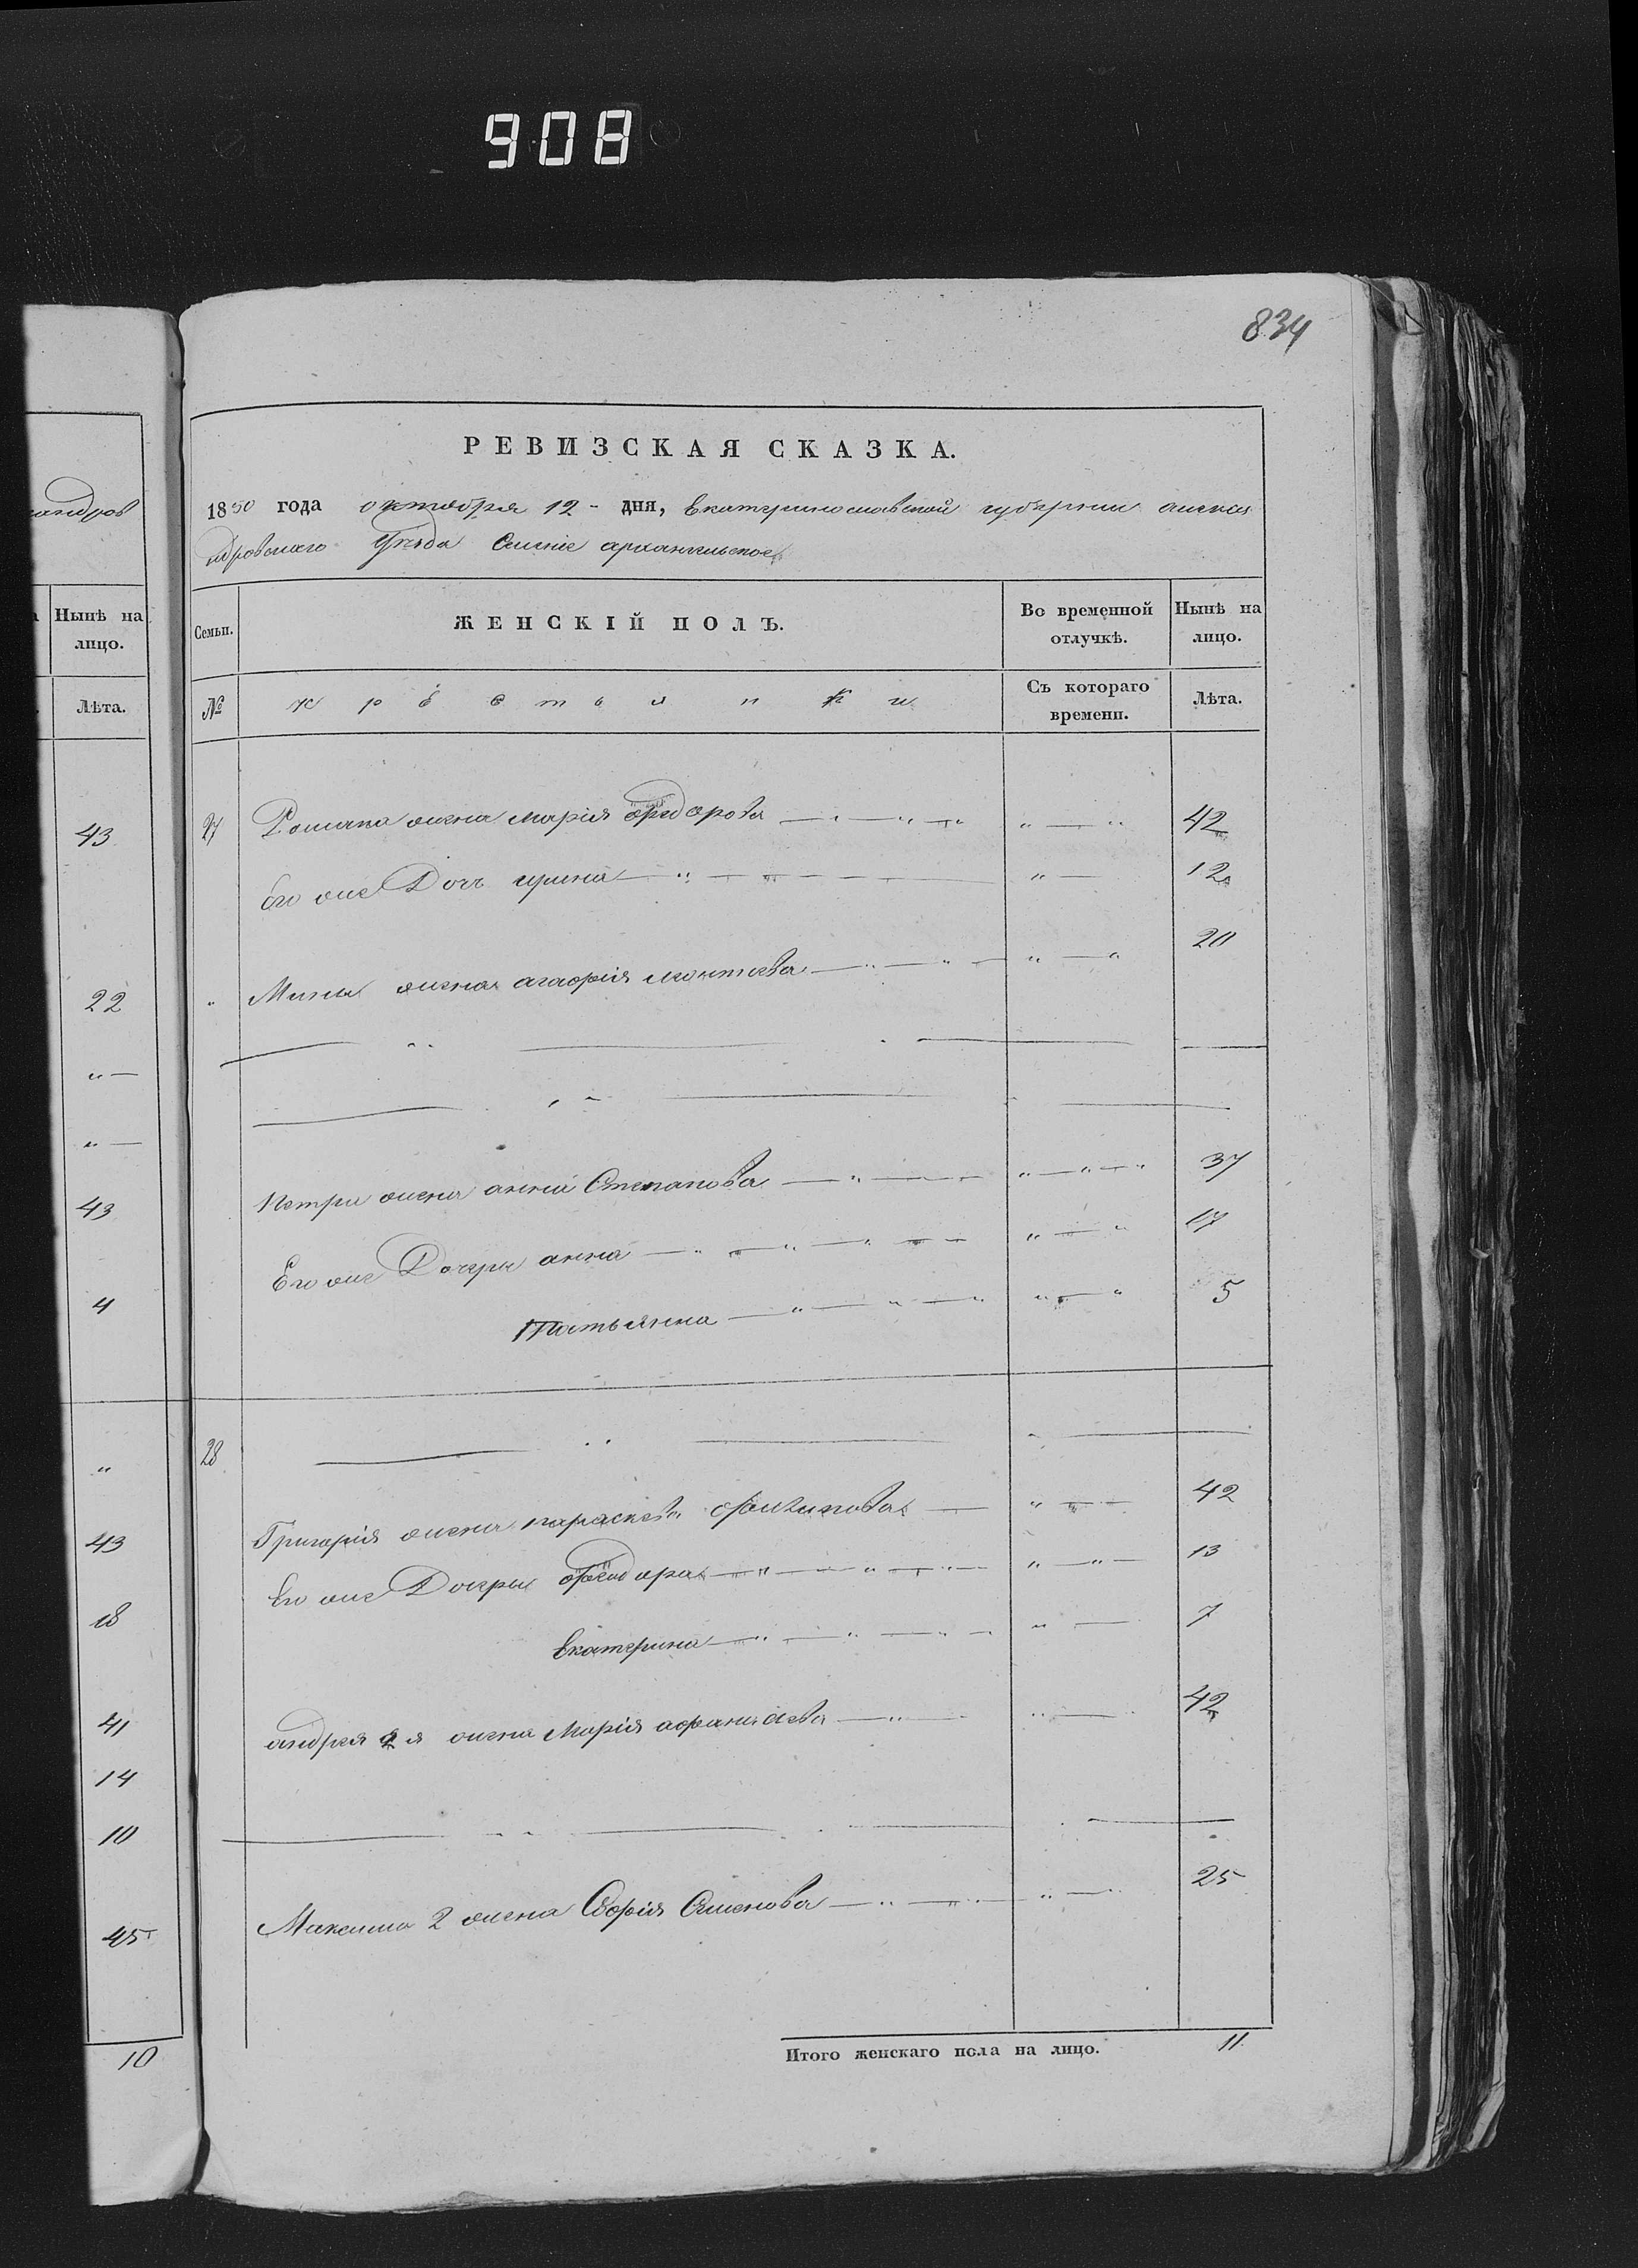 908
834
андров
РЕВИЗСКАЯ СКАЗКА.
1850 года октября 12 - дня, Екатеринославской губернии алекса
ндровскаго Уѣзда Селение архангельское
Нынѣ на лицо.
Лѣта.
Семьи.
ЖЕНСКІЙ ПОЛЪ.
Во временной отлучкѣ.
Нынѣ на лицо.
№
крестьянки
Съ котораго времени.
Лѣта.
43
27 Романа жена марія федорова 42
Его же Дочь ирина 12
22
Мины жена агафрія леонтьева 20
43
Петра жена анна Степанова 37
Его же Дочери анна 17
4
Татьянна 5
28
43
Григорія жена параскевія филипова 42
Его же Дочери федора 13
18
Екатерина 7
41
андрея 2 я жена Марія афанасьева 42
14
10
45
Максима 2 жена Софія Семенова 25
10
Итого женскаго пола на лицо. 11